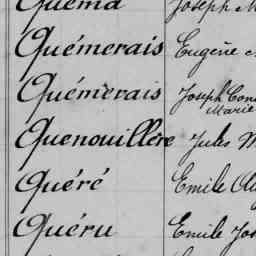 Quéma Joseph M
Quémerais Eugène
Quémerais Joseph Con
Marie
Quenouillère Jules M
Quéré Emile Au
Quéru Emile Jos